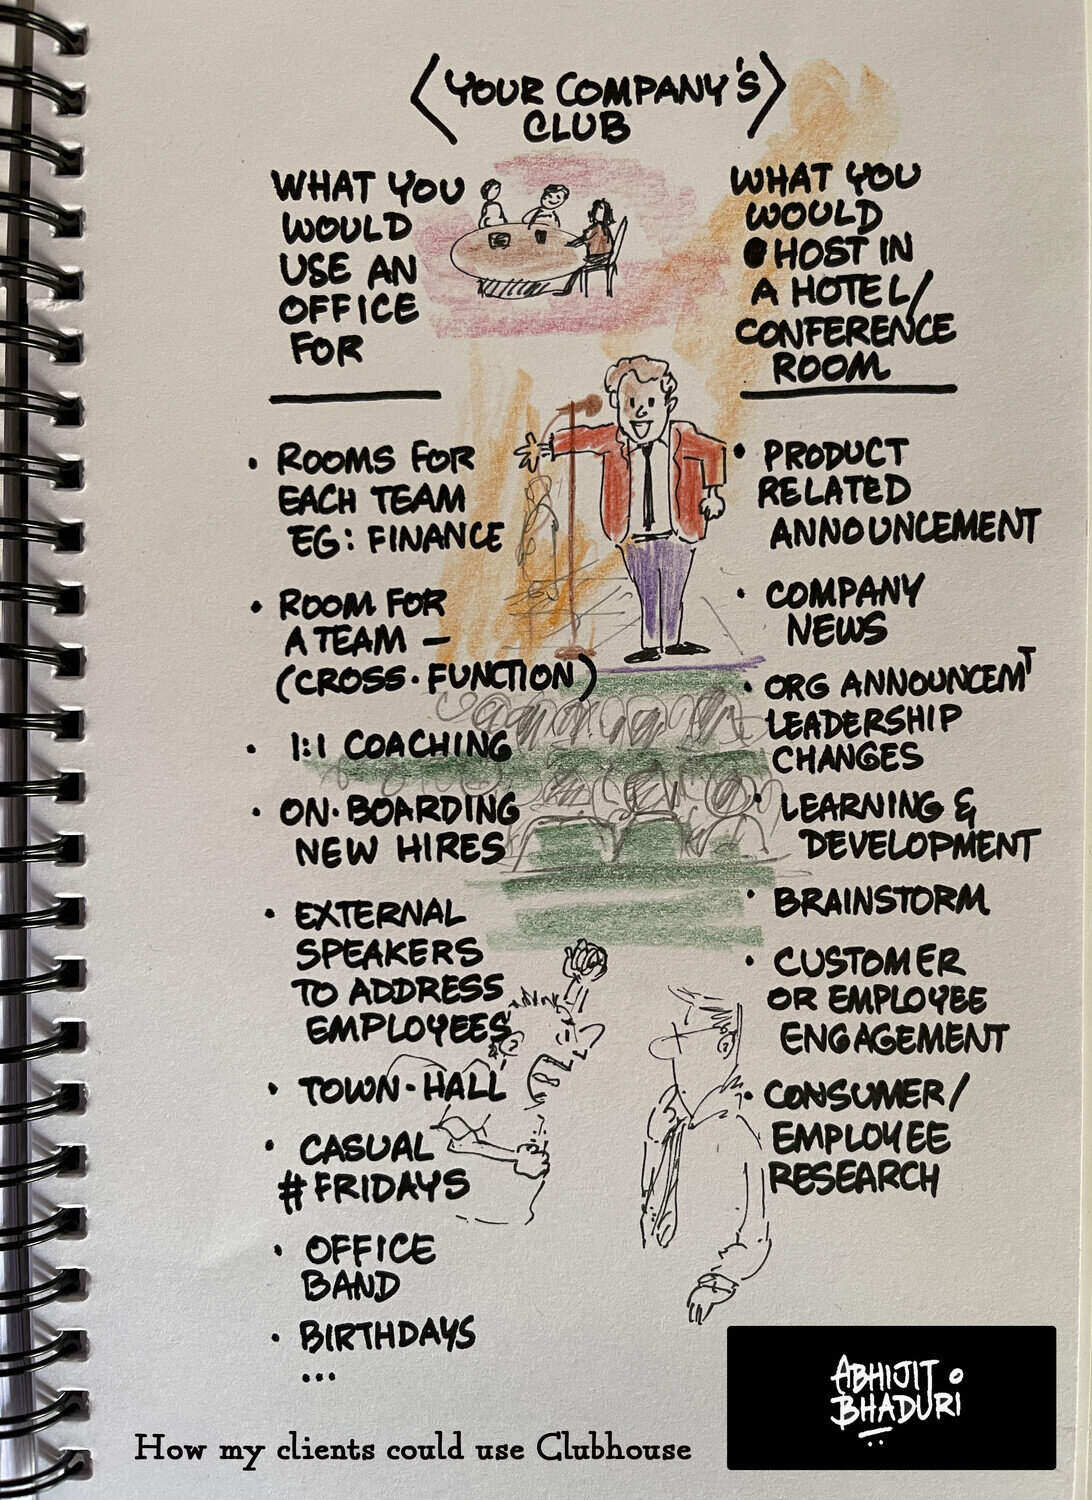 YOUR COMPANY'S
CLUB
WHAT YOU
WOULD
USE AN
OFFICE
FOR
• ROOMS FOR
EACH TEAM
EG: FINANCE
• ROOM FOR
A TEAM —
(CROSS·FUNCTION)
• 1:1 COACHING
• ON·BOARDING
NEW HIRES
• EXTERNAL
SPEAKERS
TO ADDRESS
EMPLOYEES
• TOWN-HALL
• CASUAL
#FRIDAYS
• OFFICE
BAND
• BIRTHDAYS
...
WHAT YOU
WOULD
HOST IN
A HOTEL/
CONFERENCE
ROOM
• PRODUCT
RELATED
ANNOUNCEMENT
• COMPANY
NEWS
• ORG ANNOUNCEMT
LEADERSHIP
CHANGES
• LEARNING &
DEVELOPMENT
• BRAINSTORM
• CUSTOMER
OR EMPLOYEE
ENGAGEMENT
• CONSUMER/
EMPLOYEE
RESEARCH
How my clients could use Clubhouse
ABHIJIT
BHADURI